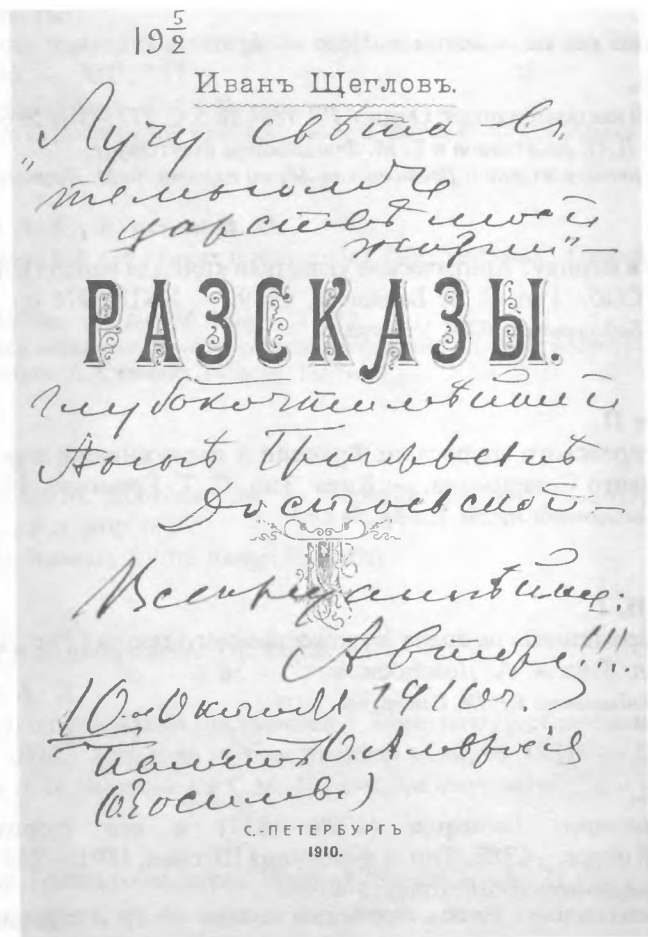 19 5/2
Иванъ Щегловъ.
Лучу свѣта въ
"темномъ
царствѣ моей
жизни" –
РАЗСКАЗЫ.
Глубокочтимѣйшей
Аннѣ Григорьевнѣ
Достоевской –
Авторъ!!!.
10 Октября 1910 г.
Память О. Амвросія
С.-ПЕТЕРБУРГЪ
1910.